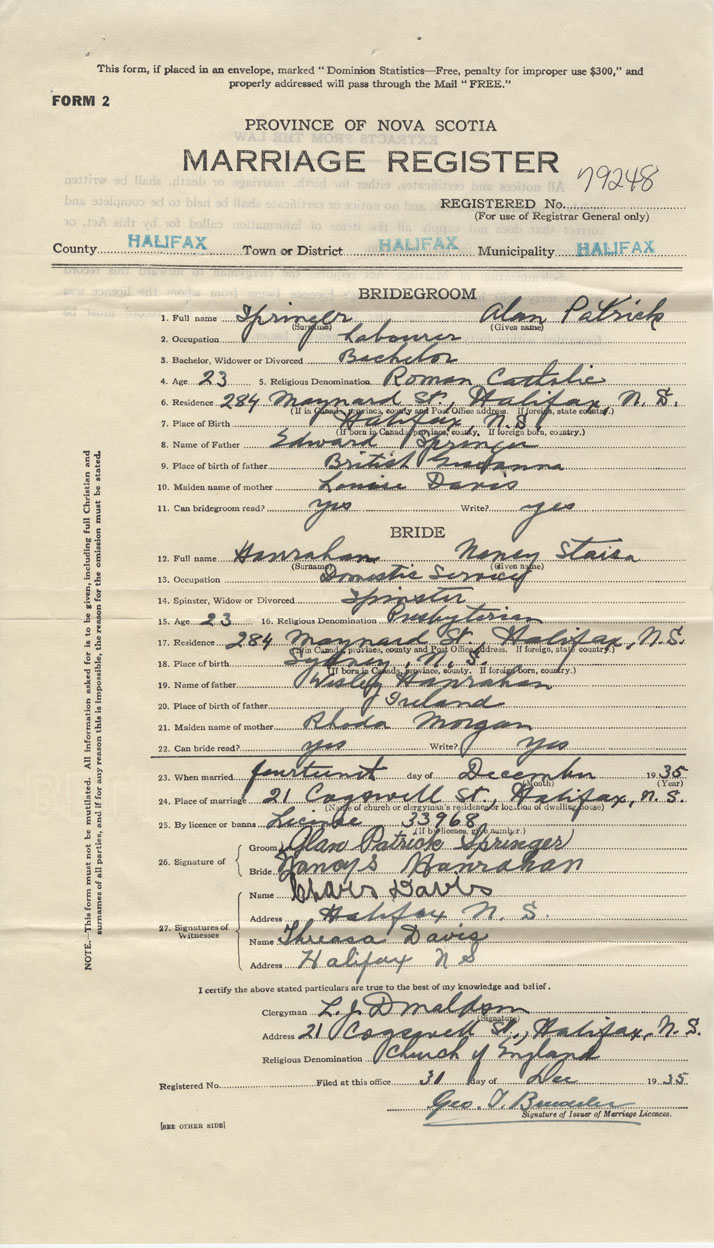 This form, if placed in an envelope, marked "Dominion Statistics—Free, penalty for improper use $300," and
properly addressed will pass through the Mail "FREE."
FORM 2
PROVINCE OF NOVA SCOTIA
MARRIAGE REGISTER
79248
REGISTERED No.
(For use of Registrar General only)
County HALIFAX Town or District HALIFAX Municipality HALIFAX
BRIDEGROOM
1. Full name Springer Alan Patrick
(Surname) (Given name)
2. Occupation Labourer
3. Bachelor, Widower or Divorced Bachelor
4. Age 23 5. Religious Denomination Roman Catholic
6. Residence 284 Maynard St., Halifax, N.S.
(If in Canada, province, county and Post Office address. If foreign, state country.)
7. Place of Birth Halifax N.S.
(If born in Canada, province, county. If foreign born, country.)
8. Name of Father Edward Springer
9. Place of birth of father British Guianna
10. Maiden name of mother Louise Davis
11. Can bridegroom read? yes Write? yes
BRIDE
12. Full name Hanrahan Nancy Staisa
(Surname) (Given name)
13. Occupation Domestic Service
14. Spinster, Widow or Divorced Spinster
15. Age 23 16. Religious Denomination Presbyterian
17. Residence 284 Maynard St., Halifax, N.S.
(If in Canada, province, county and Post Office address. If foreign, state country.)
18. Place of birth Sydney, N.S.
(If born in Canada, province, county. If foreign born, country.)
19. Name of father Wesley Hanrahan
20. Place of birth of father Ireland
21. Maiden name of mother Rhoda Morgan
22. Can bride read? yes Write? yes
23. When married fourteenth day of December 1935
(Month) (Year)
24. Place of marriage 21 Cogswell St., Halifax, N.S.
(Name of church or clergyman's residence or location of dwelling house)
25. By licence or banns License 33968
(If by licence, give number.)
26. Signature of Groom Alan Patrick Springer
Bride Nancy S Hanrahan
27. Signatures of Witnesses
Name Davis
Address Halifax N.S.
Name Threasa Davis
Address Halifax N S
I certify the above stated particulars are true to the best of my knowledge and belief.
Clergyman L. J. Donaldson
(Signature)
Address 21 Cogswell St., Halifax, N.S.
Religious Denomination Church of England
Registered No. Filed at this office 31 day of Dec 1935
Geo. T.
Signature of Issuer of Marriage Licences.
[SEE OTHER SIDE]
NOTE.—This form must not be mutilated. All information asked for is to be given, including full Christian and
surnames of all parties, and if for any reason this is impossible, the reason for the omission must be stated.